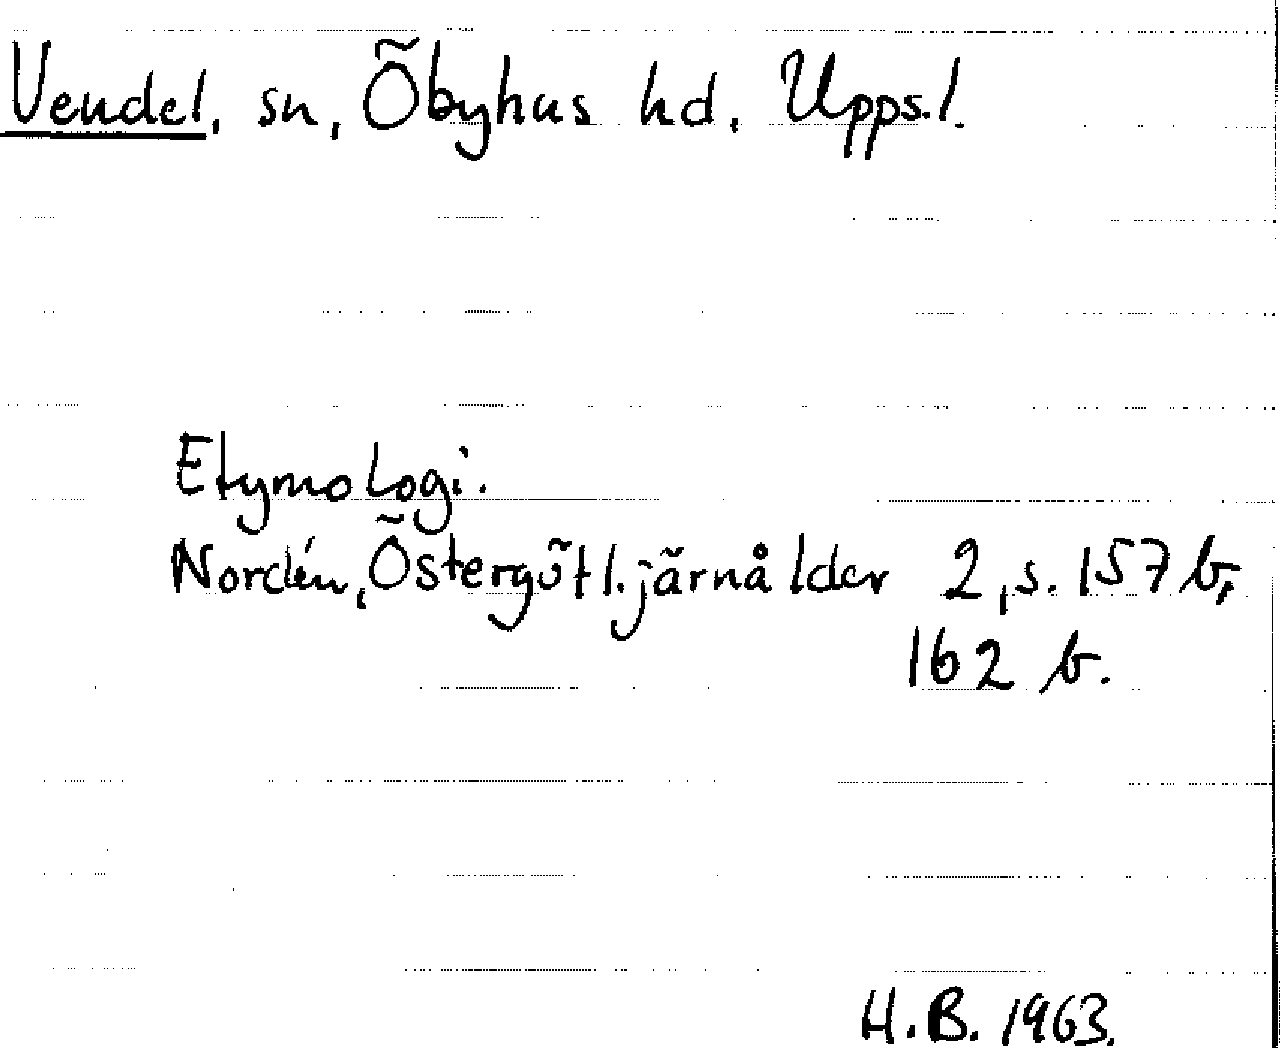 Vendel, sn, Örbyhus hd, Uppsl.
Etymologi.
Nordén, Östergötl. järnålder 2, s. 157 b,
162 b.
H.B. 1963.